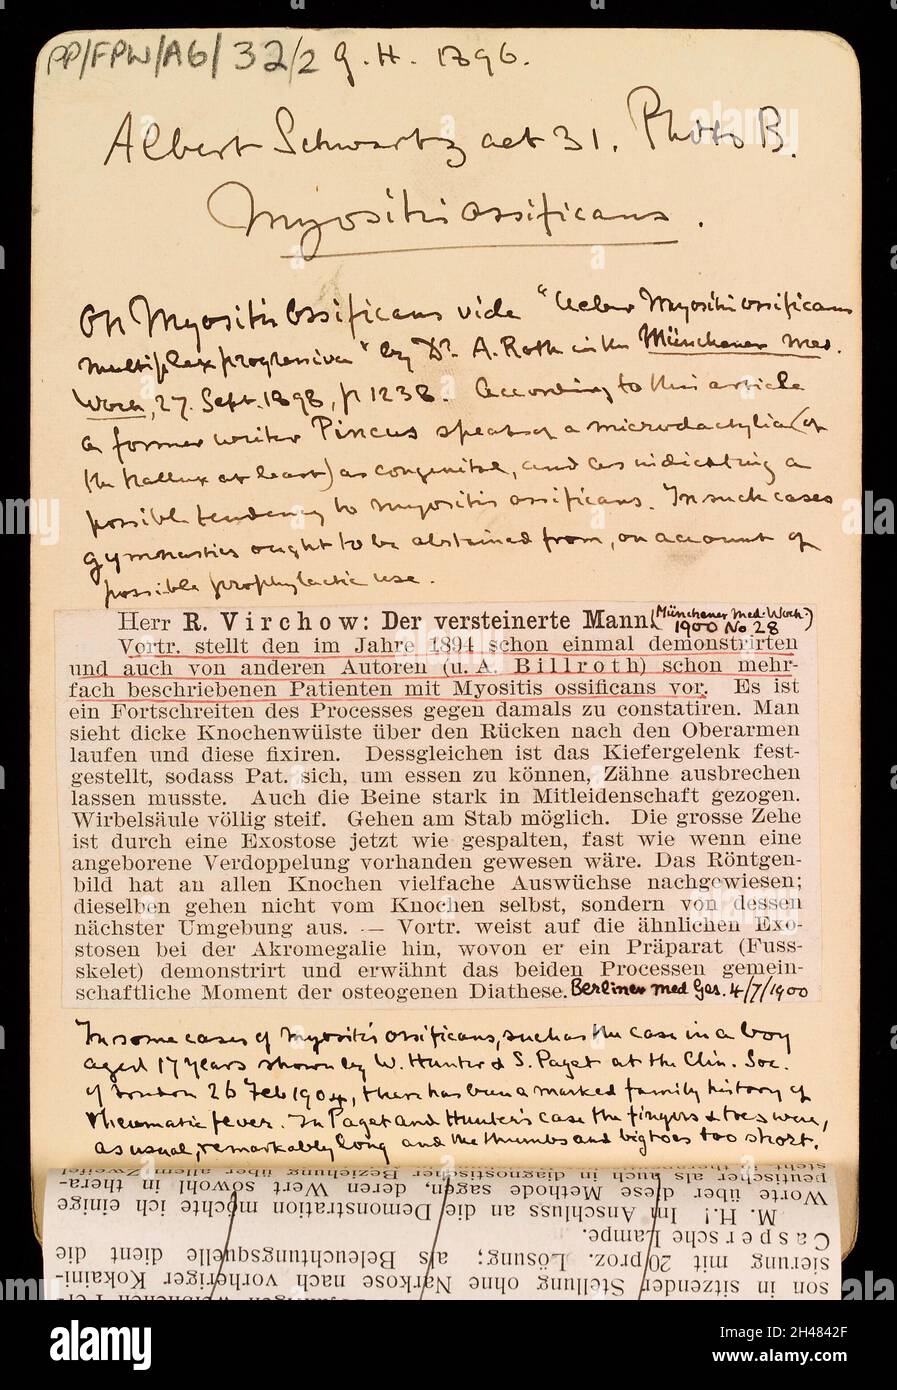 PP/FPW/A6/32/2 G.H. 1896.
Albert Schwartz aet 31. Photo B.
Myositis ossificans.
On Myositis Ossificans vide "Ueber Myositis ossificans
multiplex progressiva" by Dr. A. Roth in the Münchener Med.
Woch, 27. Sept. 1898, p 1238. According to this article
a former writer Pincus speaks of a microdactylia (of
the hallux at least) as congenital, and as indicating a
possible tendency to myositis ossificans. In such cases
gymnastics ought to be abstained from, on account of
possible prophylactic use.
Herr R. Virchow: Der versteinerte Mann. (Münchener med. Woch.
1900 No 28)
Vortr. stellt den im Jahre 1894 schon einmal demonstrirten
und auch von anderen Autoren (u. A. Billroth) schon mehr-
fach beschriebenen Patienten mit Myositis ossificans vor. Es ist
ein Fortschreiten des Processes gegen damals zu constatiren. Man
sieht dicke Knochenwülste über den Rücken nach den Oberarmen
laufen und diese fixiren. Dessgleichen ist das Kiefergelenk fest-
gestellt, sodass Pat. sich, um essen zu können, Zähne ausbrechen
lassen musste. Auch die Beine stark in Mitleidenschaft gezogen.
Wirbelsäule völlig steif. Gehen am Stab möglich. Die grosse Zehe
ist durch eine Exostose jetzt wie gespalten, fast wie wenn eine
angeborene Verdoppelung vorhanden gewesen wäre. Das Röntgen-
bild hat an allen Knochen vielfache Auswüchse nachgewiesen;
dieselben gehen nicht vom Knochen selbst, sondern von dessen
nächster Umgebung aus. — Vortr. weist auf die ähnlichen Exo-
stosen bei der Akromegalie hin, wovon er ein Präparat (Fuss-
skelet) demonstrirt und erwähnt das beiden Processen gemein-
schaftliche Moment der osteogenen Diathese. Berliner med Ges. 4/7/1900
In some cases of Myositis ossificans, such as the case in a boy
aged 17 years shown by W. Hunter & S. Paget at the Clin. Soc.
of London 26 Feb 1904, there has been a marked family history of
rheumatic fever. In Paget and Hunter's case the fingers & toes were,
as usual, remarkably long and the thumbs and big toes too short.
son in sitzender Stellung ohne Narkose nach vorheriger Kokaini-
sierung mit 20proz. Lösung; als Beleuchtungsquelle dient die
Caspersche Lampe.
M. H.! Im Anschluss an die Demonstration möchte ich einige
Worte über diese Methode sagen, deren Wert sowohl in thera-
peutischer als auch in diagnostischer Beziehung über allem Zweifel
alamy
Image ID: 2H4842F
www.alamy.com